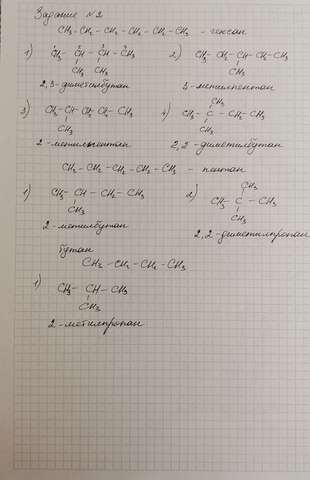 Задание №2
CH₃-CH₂-CH₂-CH₂-CH₂-CH₃ - гексан
1) CH₃-CH-CH-CH₃
CH₃ CH₃
2,3-диметилбутан
2) CH₃-CH₂-CH-CH₂-CH₃
CH₃
3-метилпентан
3) CH₃-CH-CH₂-CH₂-CH₃
CH₃
2-метилпентан
4) CH₃
CH₃-C-CH₂-CH₃
CH₃
2,2-диметилбутан
CH₃-CH₂-CH₂-CH₂-CH₃ - пентан
1) CH₃-CH-CH₂-CH₃
CH₃
2-метилбутан
2) CH₃
CH₃-C-CH₃
CH₃
2,2-диметилпропан
бутан
CH₃-CH₂-CH₂-CH₃
1) CH₃-CH-CH₃
CH₃
2-метилпропан